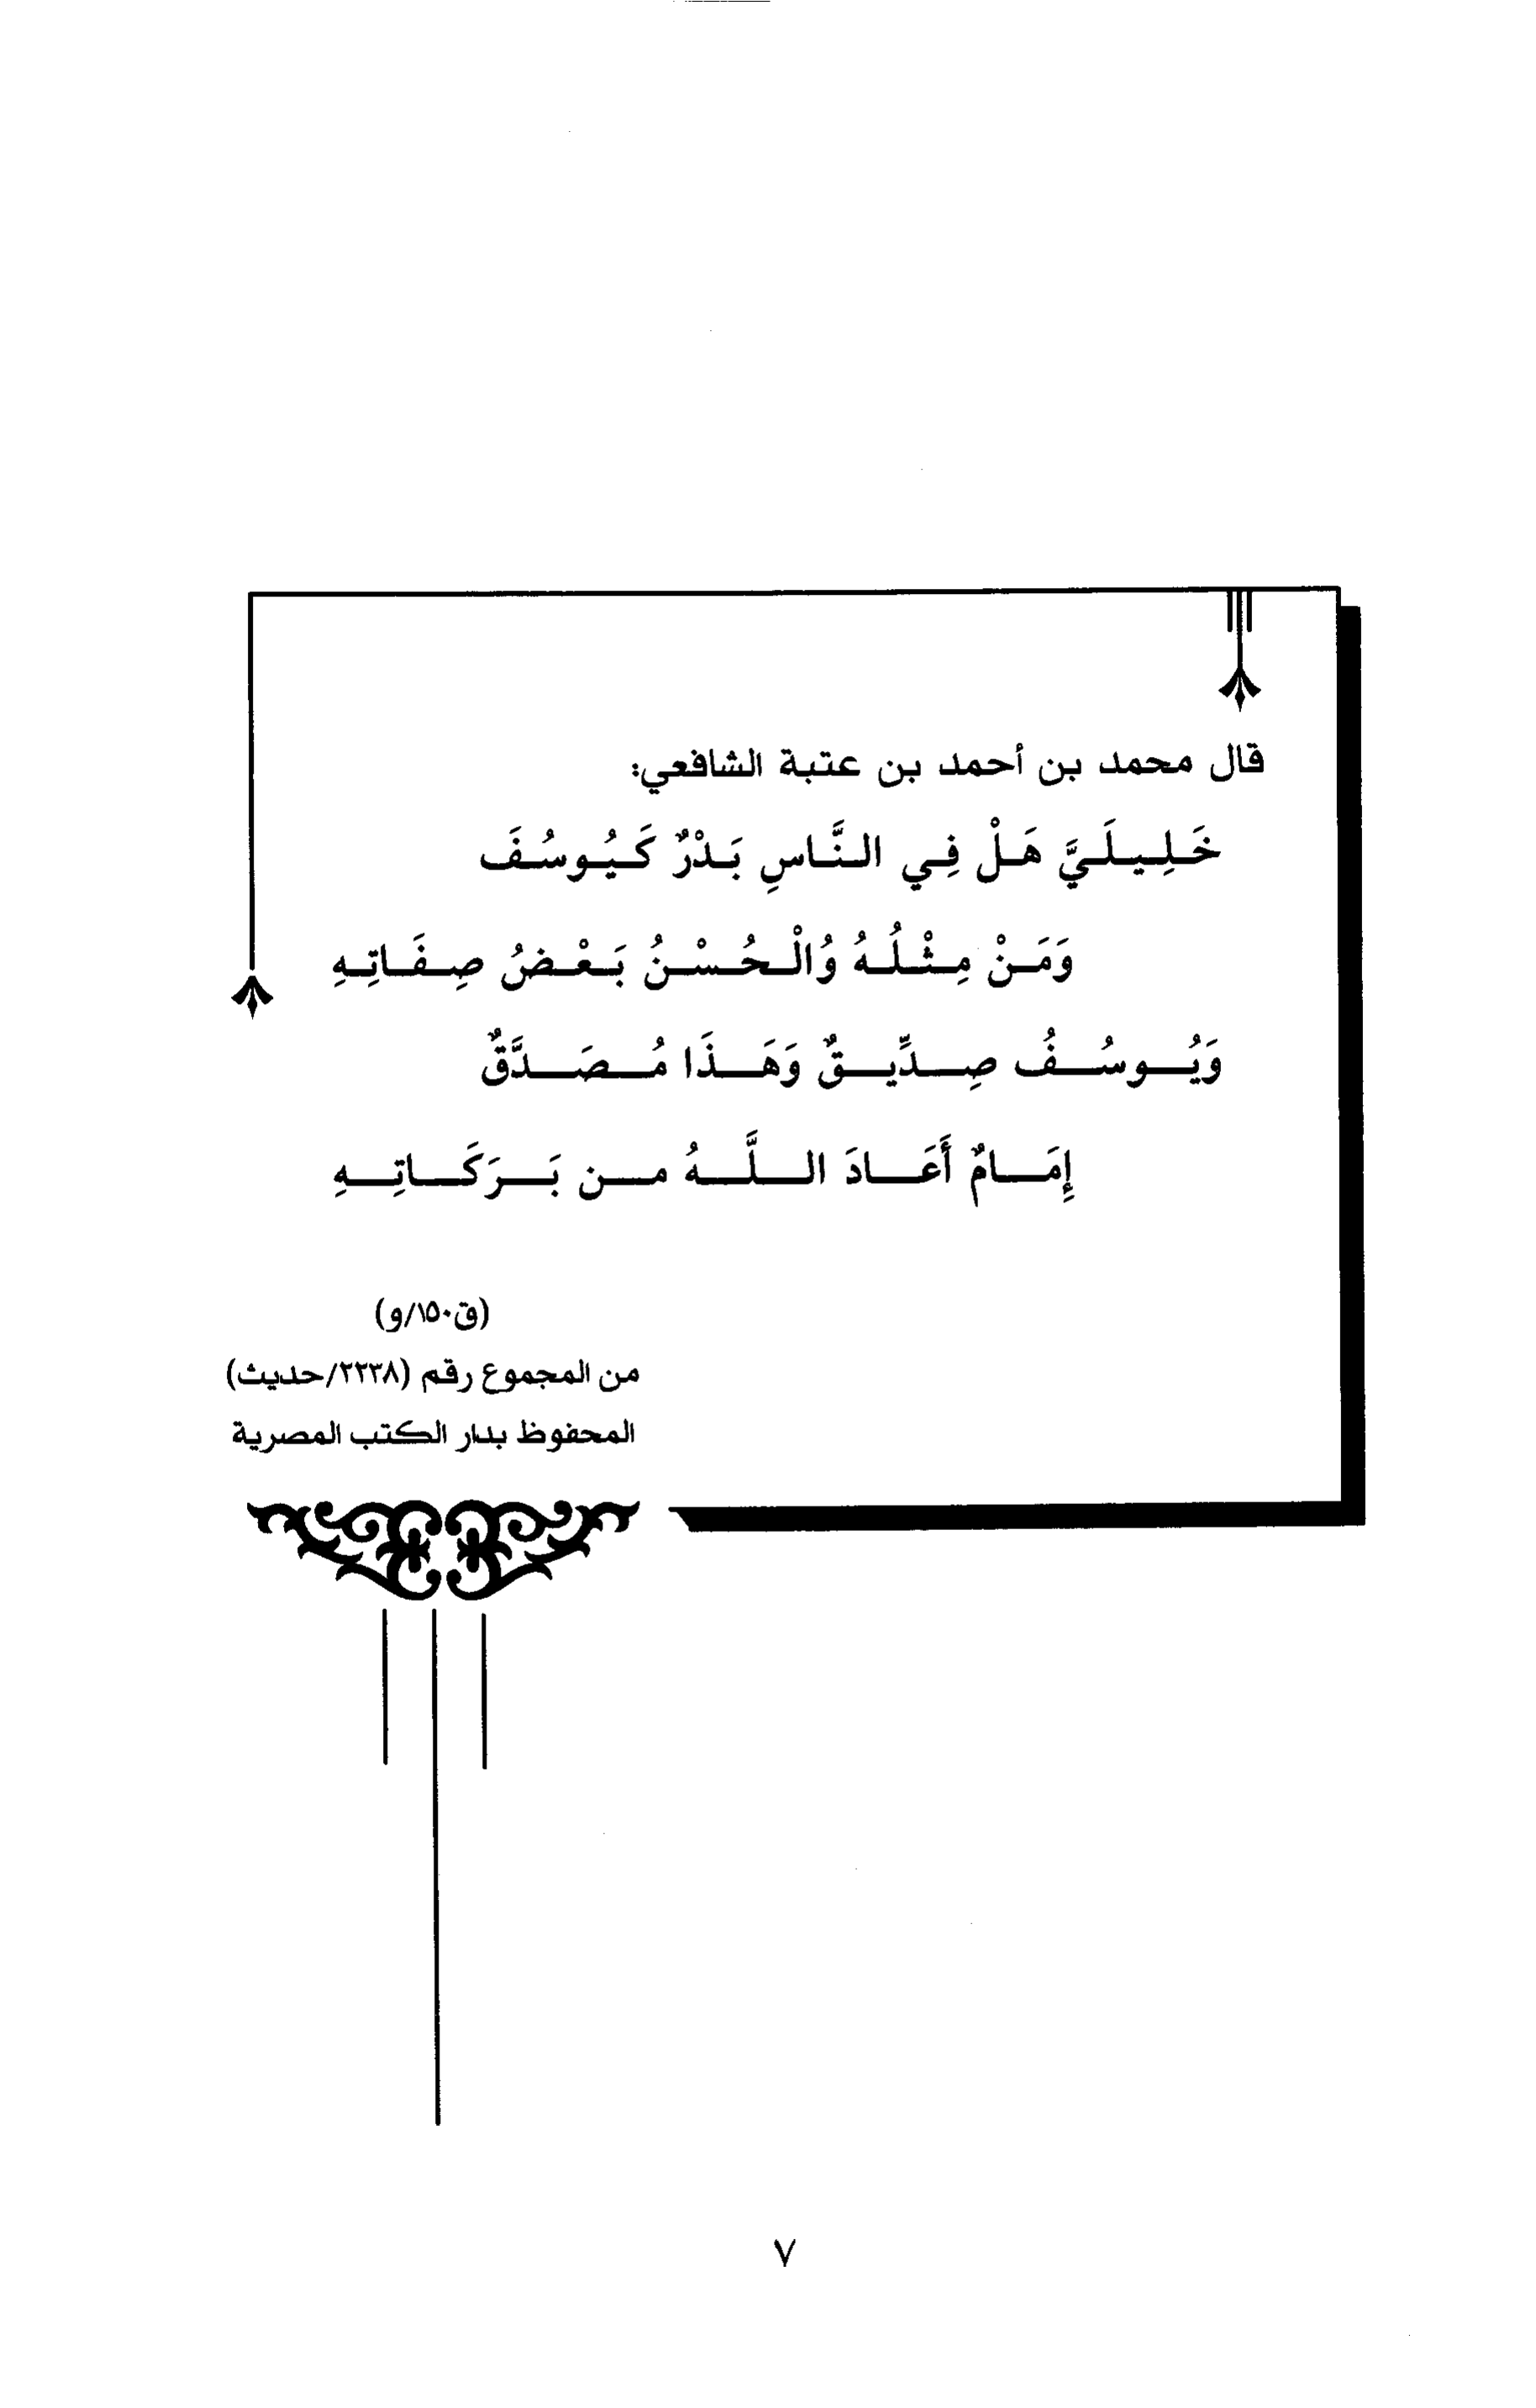 قال محمد بن أحمد بن عتبة الشافعي:
خَلِيلَيَّ هَلْ فِي النَّاسِ بَدْرٌ كَيُوسُفَ
وَمَنْ مِثْلُهُ وُالْحُسْنُ بَعْضُ صِفَاتِهِ
وَيُوسُفُ صِدِّيقٌ وَهَذَا مُصَدَّقٌ
إِمَامٌ أَعَادَ اللَّهُ من بَرَكَاتِهِ
(ق١٥٠/و)
من المجموع رقم (٢٢٣٨/حديث)
المحفوظ بدار الكتب المصرية
٧